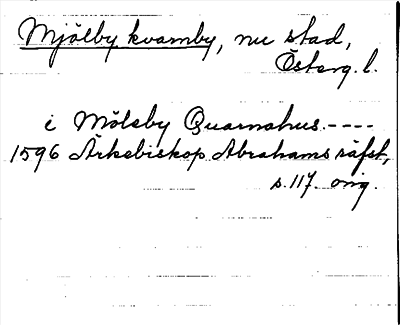 Mjölby kvarnby, nu stad,
Österg. l.
i Möleby Quarnahus.----
1596 Ärkebiskop Abrahams räfst,
s. 117. orig.